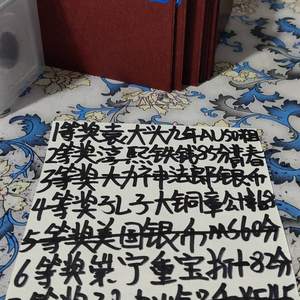 1等奖袁大头九年AU50粗
2等奖淳熙铁钱85分青春
3等奖大力神法郎银币
4等奖孔子大铜章公博68
5等奖美国银币MS60分
6等奖崇宁重宝折十82分